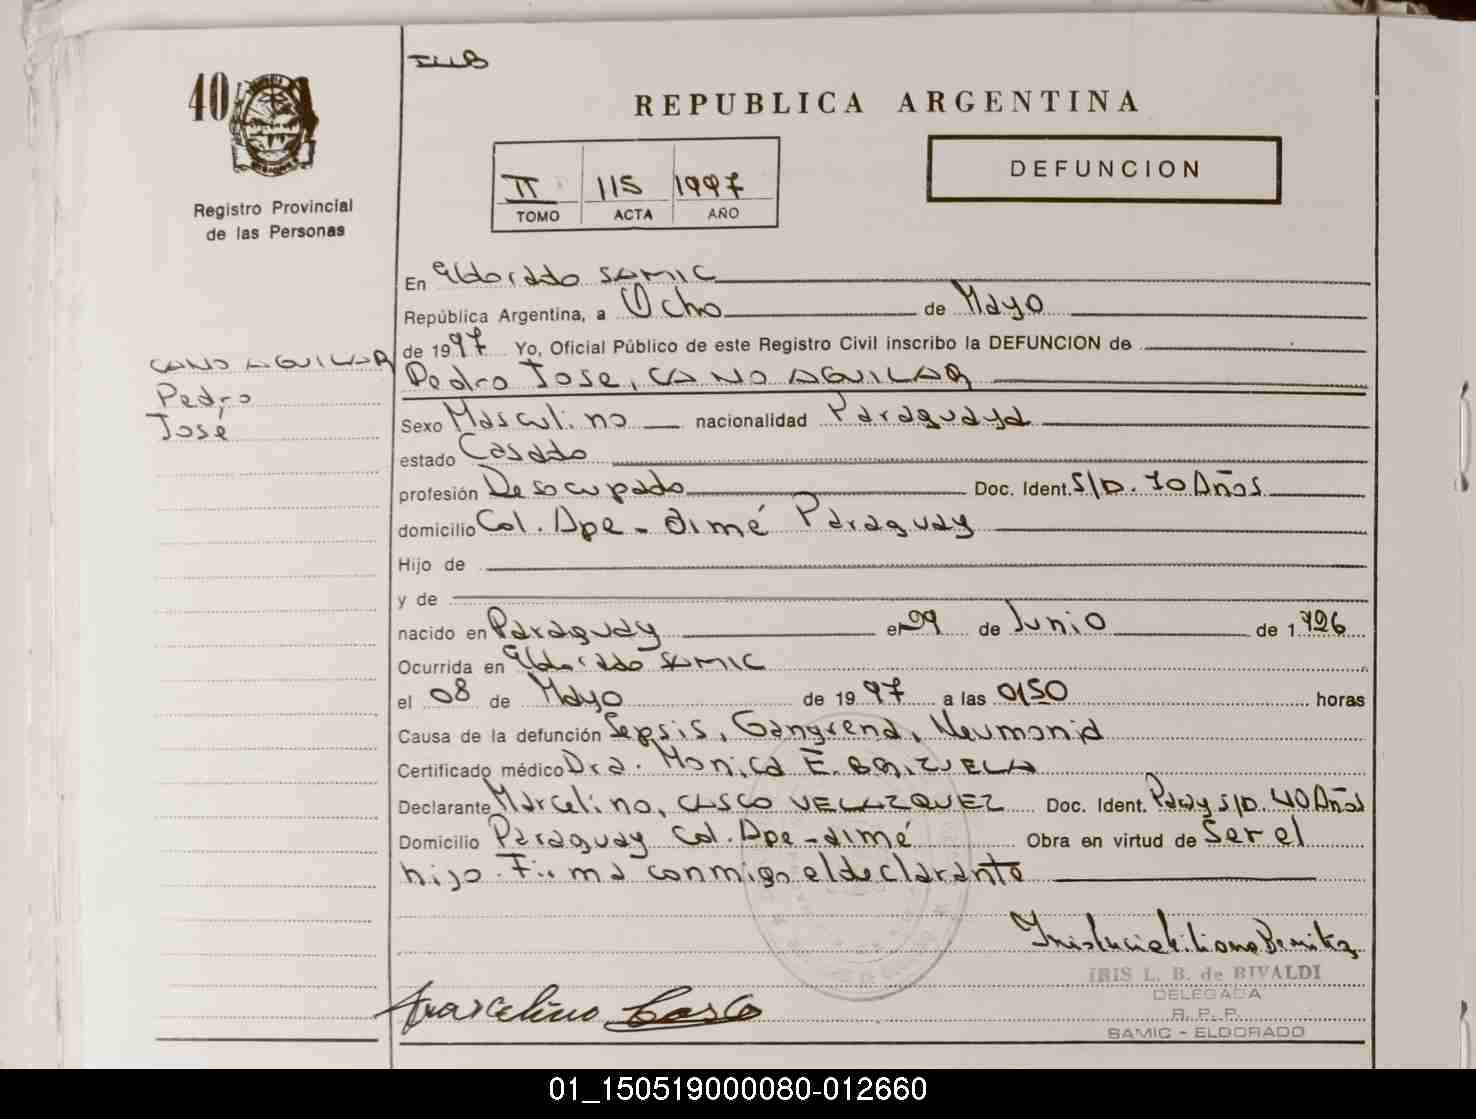 40
REPUBLICA ARGENTINA
DEFUNCION
II 115 1997
TOMO ACTA AÑO
Registro Provincial
de las Personas
En Eldorado SAMIC
República Argentina, a Ocho de Mayo
de 1997 Yo, Oficial Público de este Registro Civil inscribo la DEFUNCION de
CANO AGUILAR
Pedro
José
Pedro Jose, CANO AGUILAR
Sexo Masculino nacionalidad Paraguaya
estado Casado
profesión Desocupado Doc. Ident. S/D. 70 Años
domicilio Col. Ape-aimé Paraguay
Hijo de
y de
nacido en Paraguay el 29 de Junio de 1926
Ocurrida en Eldorado SAMIC
el 08 de Mayo de 1997 a las 0150 horas
Causa de la defunción Sepsis, Gangrena, Neumonia
Certificado médico Dra. Monica E. BRIZUELA
Declarante Marcelino, CASCO VELAZQUEZ Doc. Ident. Paray S/D. 40 Años
Domicilio Paraguay Col. Ape-aimé Obra en virtud de Ser el
hijo. Firma conmigo el declarante
IRIS L. B. de RIVALDI
DELEGADA
R. P. P.
SAMIC - ELDORADO
Marcelino Casco
01_150519000080-012660